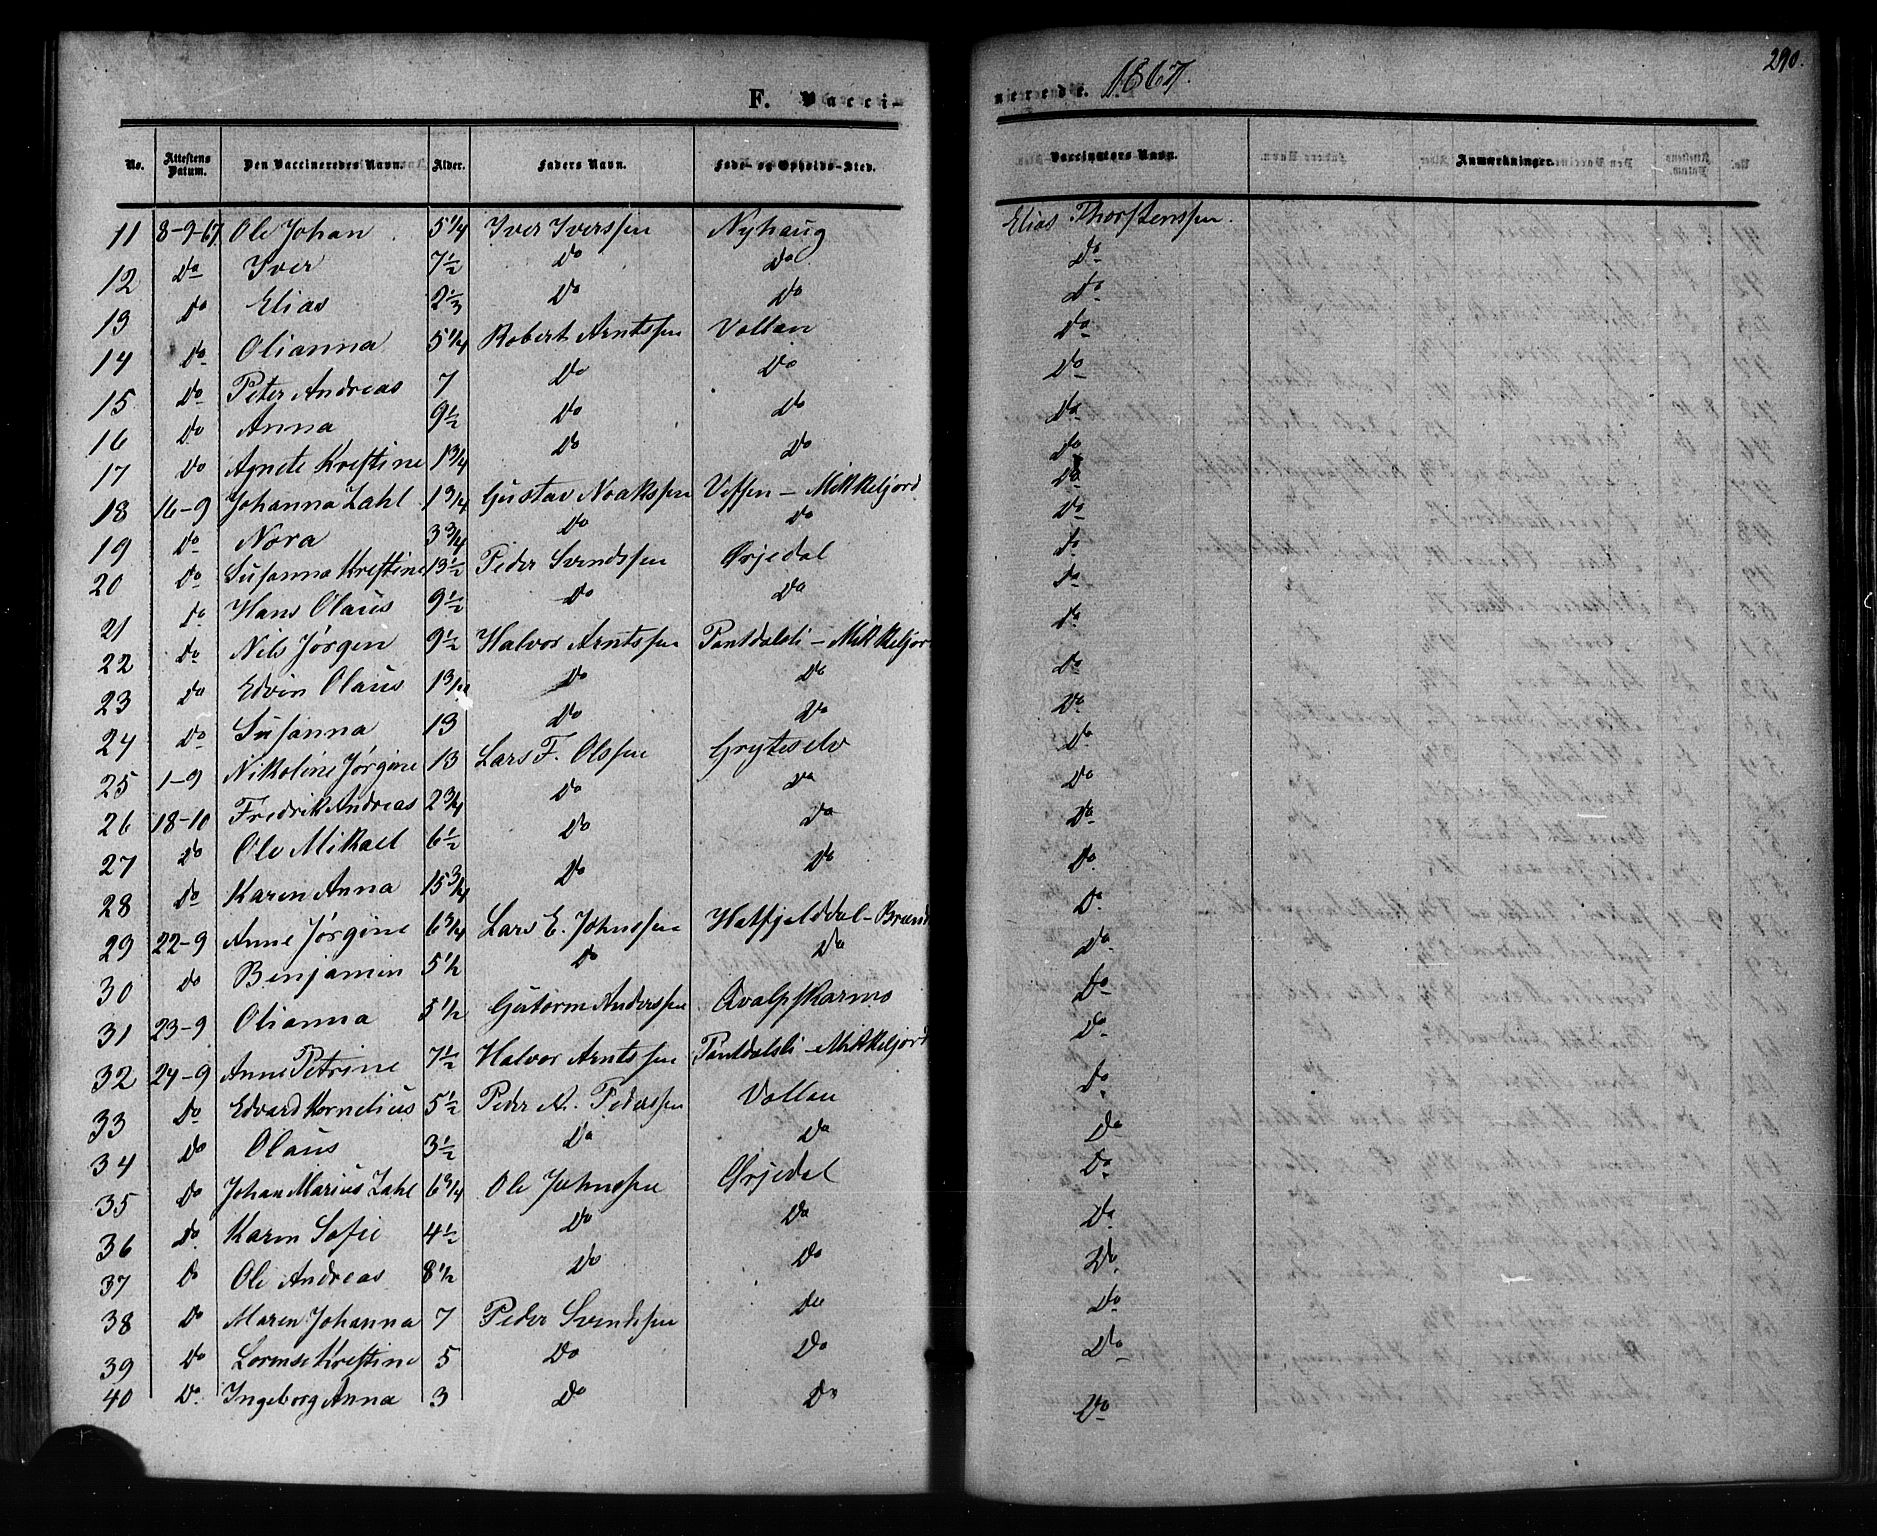 290.
F. Vacci-
nerede. 1867.
No. Attestens Datum. Den Vaccineredes Navn. Alder. Faders Navn. Føde- og Opholds-Sted. Vaccinators Navn. Anmærkninger.
11 8-9-67 Ole Johan 5 1/4 Iver Iverssen Nyhaug Elias Thorstenssen.
12 Do Iver 7 1/2 Do Do Do
13 Do Elias 2 1/3 Do Do Do
14 Do Olianna 5 1/4 Robert Arntssen Vollan Do
15 Do Peter Andreas 7 Do Do Do
16 Do Anna 9 1/2 Do Do Do
17 Do Agnete Krestine 1 3/4 Do Do Do
18 16-9 Johanna Zahl 1 3/4 Gustav Noakssen Vefsen - Mikkeljord Do
19 Do Nora 3 3/4 Do Do Do
20 Do Susanna Krestine 13 1/2 Peder Svendssen Ørjedal Do
21 Do Hans Olaus 9 1/2 Do Do Do
22 Do Nils Jørgen 9 1/2 Halvor Arntssen Pantdalsli - Mikkeljor Do
23 Do Edvin Olaus 1 3/4 Do Do Do
24 Do Susanna 13 Do Do Do
25 1-9 Nikoline Jørgine 13 Lars F. Olssen Gryteselv Do
26 18-10 Fredrik Andreas 2 3/4 Do Do Do
27 Do Ole Mikael 6 1/2 Do Do Do
28 Do Karen Anna 15 3/4 Do Do Do
29 22-9 Anne Jørgine 6 3/4 Lars E. Johnssen Hatfjelddal - Do
30 Do Benjamin 5 1/2 Do Do Do
31 23-9 Olianna 5 1/2 Gutorm Anderssen Kvalpskarmo Do
32 24-9 Anne Petrine 7 1/2 Halvor Arntssen Pantdalsli - Mikkeljord Do
33 Do Edvard Kornelius 5 1/2 Peder A. Pederssen Vollan Do
34 Do Olaus 3 1/2 Do Do Do
35 Do Johan Marius Zahl 6 3/4 Ole Johnssen Ørjedal Do
36 Do Karen Sofie 4 1/2 Do Do Do
37 Do Ole Andreas 8 1/2 Do Do Do
38 Do Maren Johanna 7 Peder Svendssen Do Do
39 Do Lorense Krestine 5 Do Do Do
40 Do Ingeborg Anna 3 Do Do Do